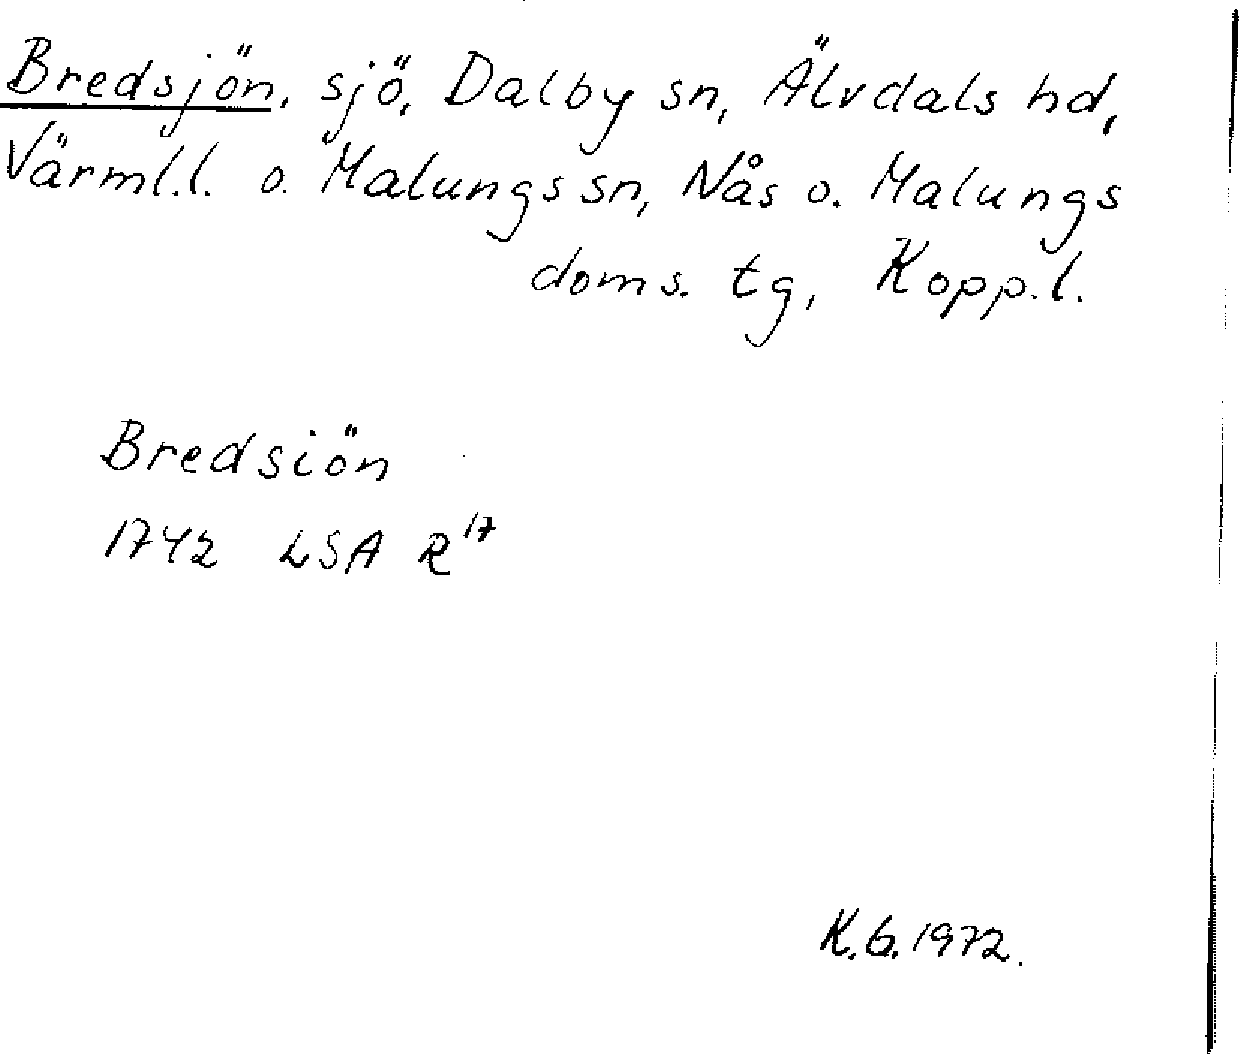 Bredsjön, sjö, Dalby sn, Älvdals hd,
Värml.l. o. Malungs sn, Nås o. Malungs
doms. tg, Kopp.l.
Bredsiön
1742 LSA R¹⁷
K.G. 1972.